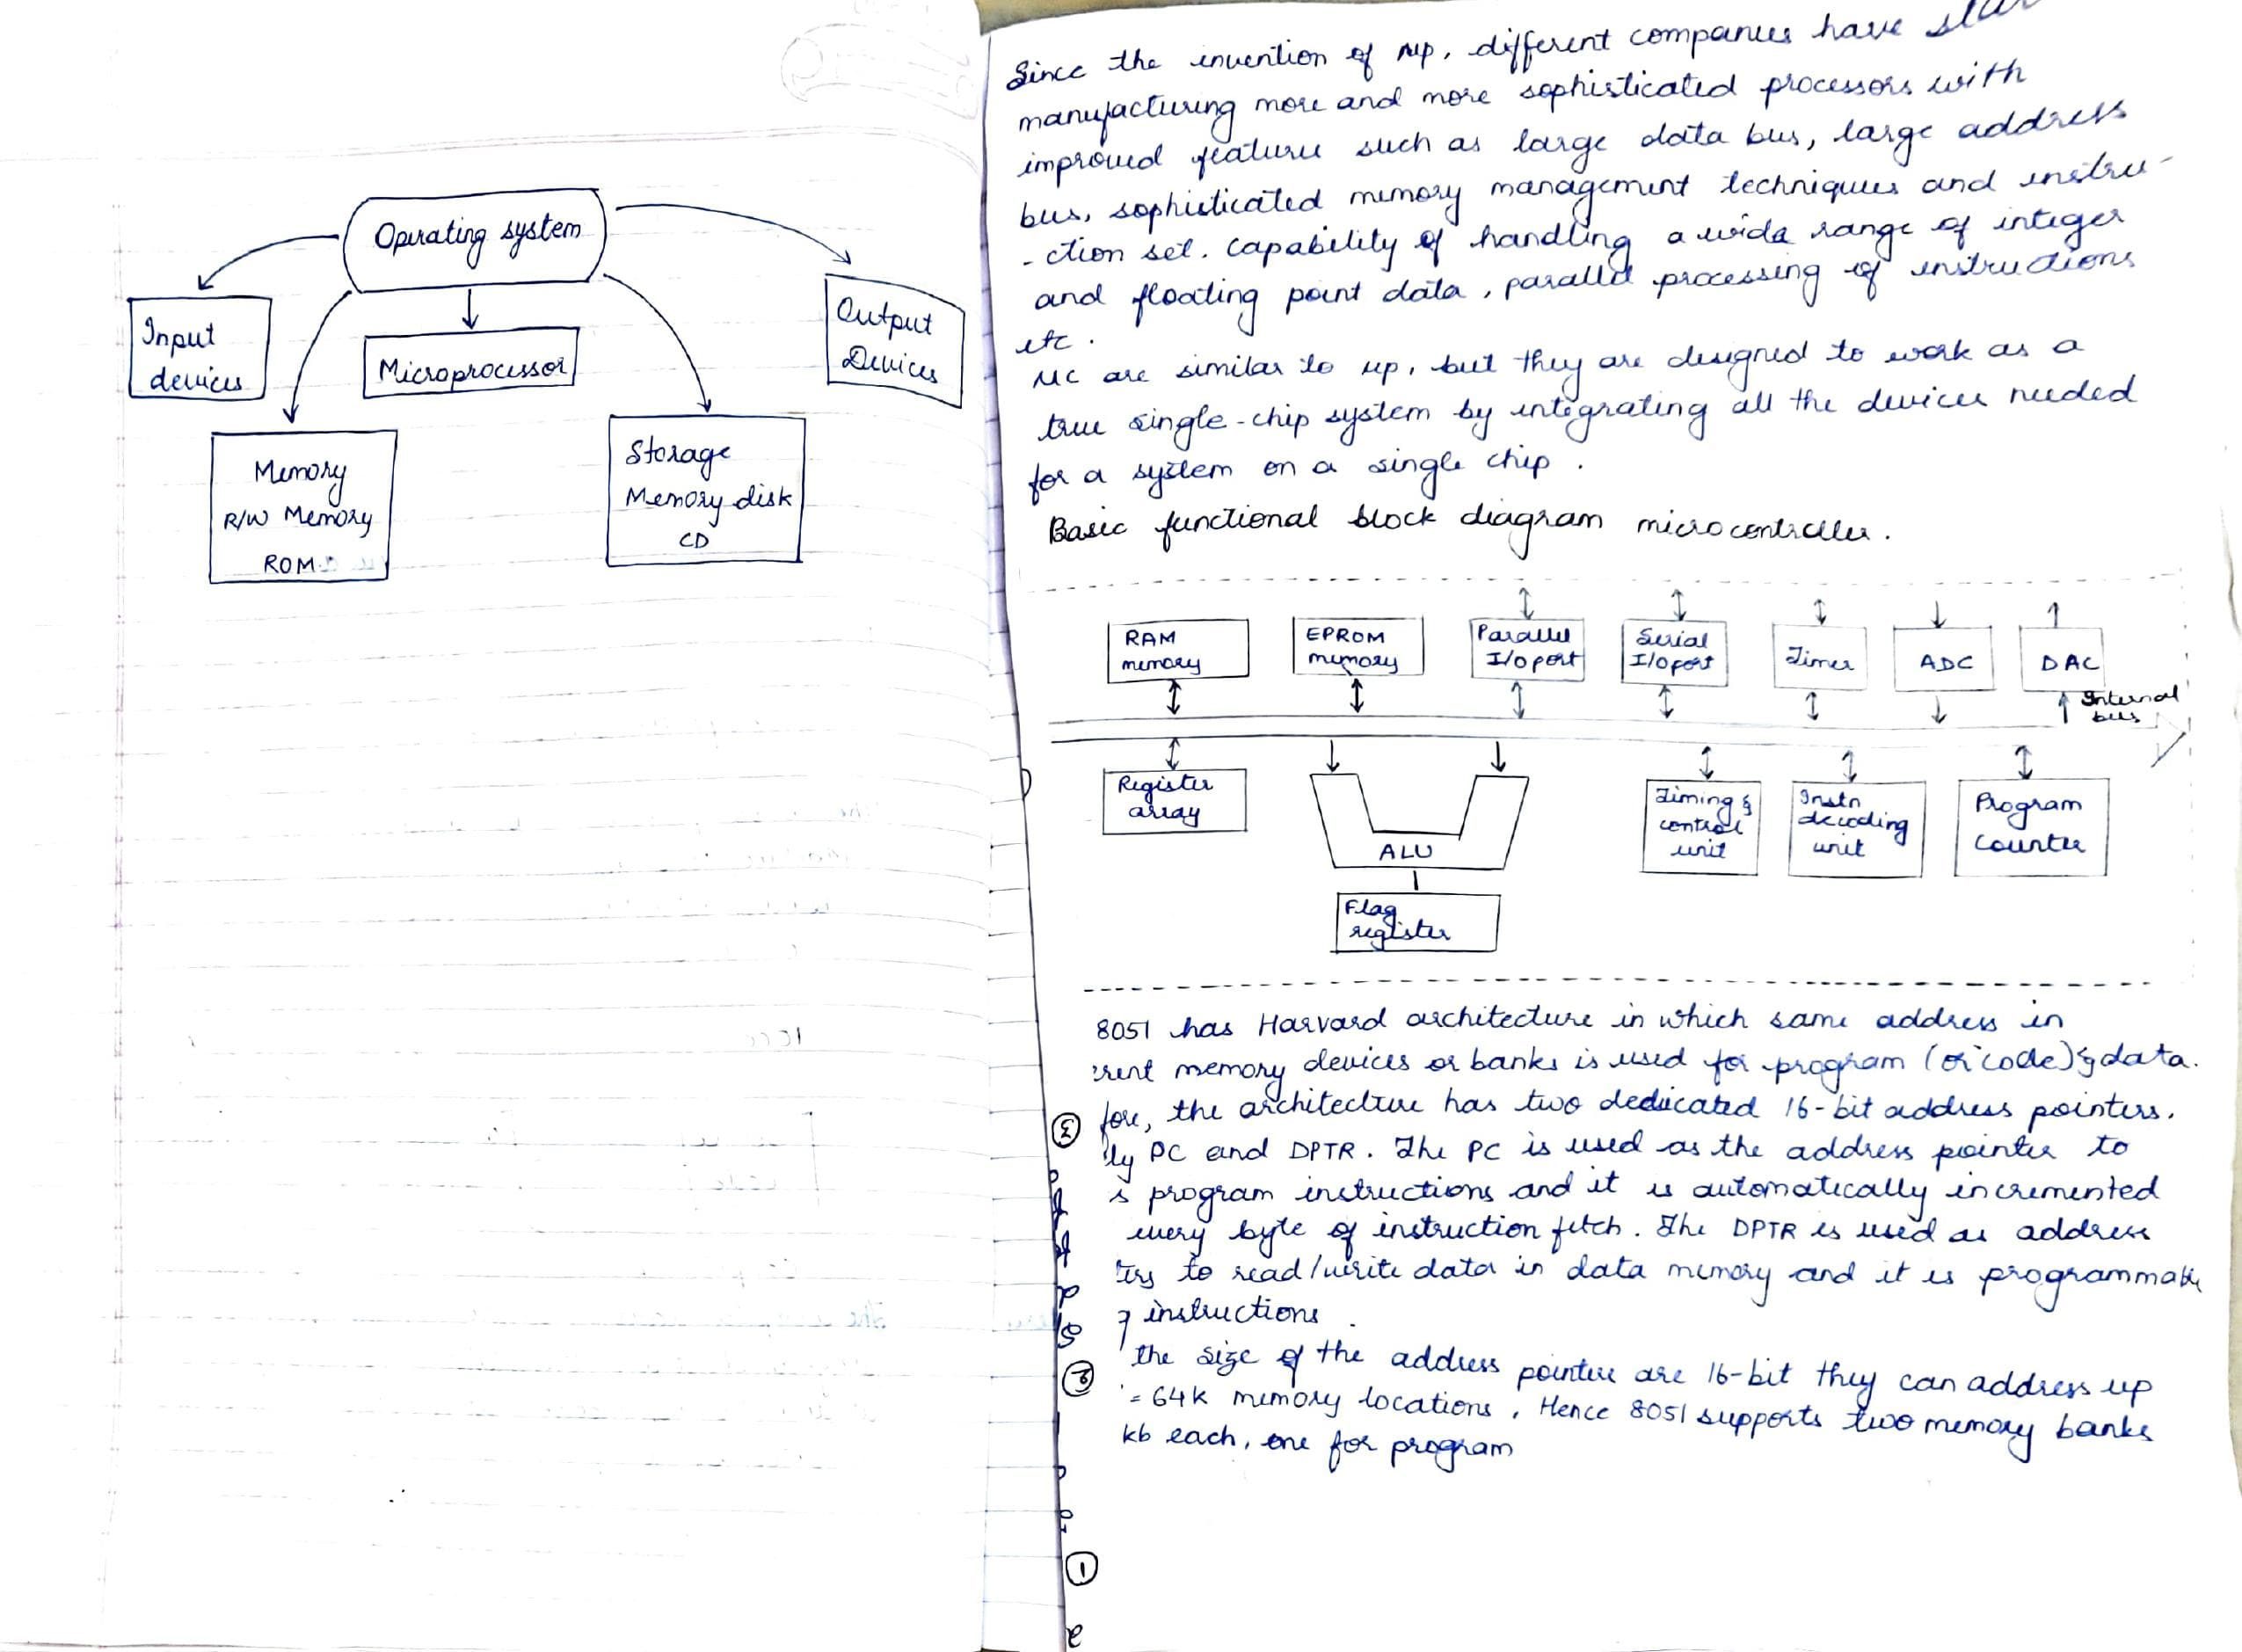 Operating system
Input
devices
Microprocessor
Output
Devices
Memory
R/W Memory
ROM
Storage
Memory disk
CD
Since the invention of up, different companies have
manufacturing more and more sophisticated processors with
improved feature such as large data bus, large address
bus, sophisticated memory management techniques and instru-
-ction set. capability of handling a wide range of integer
and floating point data, parallel processing of instructions
etc.
MC are similar to up, but they are designed to work as a
true single-chip system by integrating all the devices needed
for a system on a single chip.
Basic functional block diagram microcontroller.
RAM
memory
EPROM
memory
Parallel
I/O port
Serial
I/O port
Timer
ADC
DAC
Internal
bus
Register
array
ALU
Timing &
control
unit
Instn
decoding
unit
Program
Counter
Flag
register
8051 has Harvard architecture in which same address in
memory devices or banks is used for program (or code) & data.
fore, the architecture has two dedicated 16-bit address pointers.
ly PC and DPTR. The PC is used as the address pointer to
s program instructions and it is automatically incremented
every byte of instruction fetch. The DPTR is used as address
to read/write data in data memory and it is programmable
instructions
the size of the address pointer are 16-bit they can address up
= 64K memory locations, Hence 8051 supports two memory banks
kb each, one for program
3
2
1